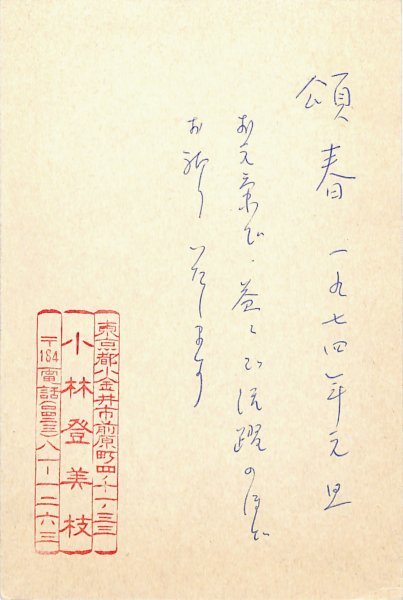 頌春 一九七四年元旦
お元気で、益々ご活躍のほど
お祈りいたします
東京都小金井市前原町四ノ十一ノ三三
小林登美枝
〒184 電話(四三三)八一ー一二六三